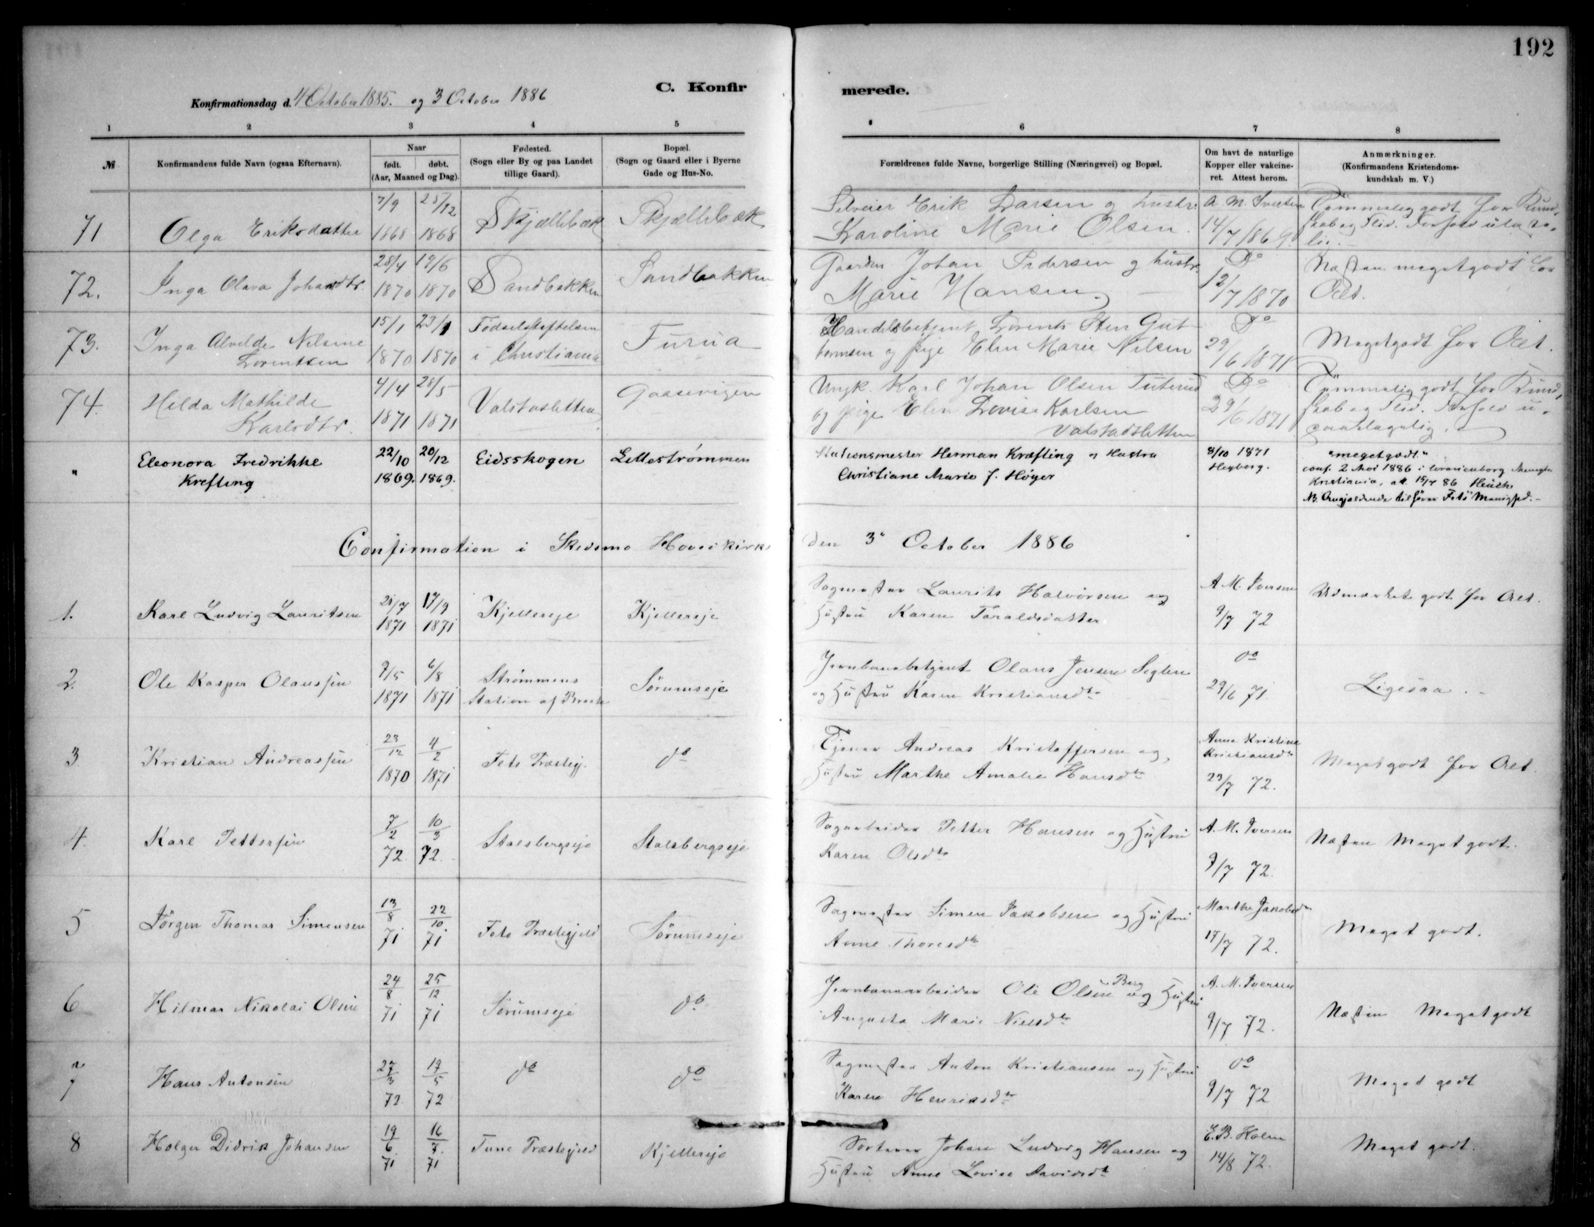 192
C. Konfirmerede.
Konfirmationsdag d. 4 October 1885. og 3 October 1886
1 2 3 4 5 6 7 8
№
Konfirmandens fulde Navn (ogsaa Efternavn).
Naar
født. døbt.
(Aar, Maaned og Dag).
Fødested.
(Sogn eller By og paa Landet
tillige Gaard).
Bopæl.
(Sogn og Gaard eller i Byerne
Gade og Hus-No.
Forældrenes fulde Navne, borgerlige Stilling (Næringsvei) og Bopæl.
Om havt de naturlige
Kopper eller vakcine-
ret. Attest herom.
Anmærkninger.
(Konfirmandens Kristendoms-
kundskab m. V.)
71 Olga Eriksdatter 7/9 1868 25/12 1868 Skjællebæk Skjællebæk
Selveier Erik Larsen og hustru
Karoline Marie Olsen. A M Iversen 14/7 1869
Temmelig godt for Kund-
skab og Flid. Forhold
72. Inga Olava Johansdtr 28/4 1870 19/6 1870 Sandbakken Sandbakken
Gaardm Johan Pedersen og hustr.
Marie Hansen Do 12/7 1870
Næsten meget godt for
Odet.
73. Inga Alvilde Nilsine
Lorentsen 15/1 1870 23/1 1870 Fødselsstiftelsen
i Christiania Furua
Handelsbetjent Lorents Sten Gut-
tormsen og pige Elen Marie Nilsen Do 29/6 1871
Meget godt for Odet.
74. Hilda Mathilde
Karlsdtr. 4/4 1871 28/5 1871 Valstadsletten Gaasevigen
Ungk. Karl Johan Olsen Tuterud
og pige Elen Lovise Karlsen
Valstadsletten Do 29/6 1871
Temmelig godt for Kund-
skab og Flid. Forhold u-
paaklagelig.
" Eleonora Fredrikke
Krefting 22/10 1869. 20/12 1869. Eidsskogen Lillestrømmen
Stationsmester Herman Kræfting og Hustru
Christiane Marie f. Høyer 31/10 1871
Heyberg.
"megetgodt"
conf. 2 Mai 1886 i Uranienborg Menighed
Kristiania, att 15/7 86 Heuch
NB. Angjældende tilhører Fets Menighed.
Confirmation i Skedsmo Hovedkirke den 3die October 1886
1. Karl Ludvig Lauritsen 21/7 1871 17/9 1871 Kjellereje Kjellereje
Sagmester Laurits Halvorsen og
Hustru Karen Taraldsdatter A. M. Iversen 9/7 72
Udmærket godt for Odet.
2. Ole Kasper Olaussen 9/5 1871 6/8 1871 Strømmens
Station af Sørumseje
Jernbanebetjent Olaus Jensen
og Hustru Karen Kristiansdtr do 29/6 71.
Ligesaa.
3 Kristian Andreassen 23/12 1870 4/2 1871 Fets Præstegj. do
Tjener Andreas Kristoffersen og
Hustru Marthe Amalie Hansdtr Anne Kristine
Kristiansdtr 23/7 72.
Meget godt for Odet.
4. Karl Pettersen 7/2 72 10/3 72. Stalsbergseje Stalsbergseje
Sagarbeider Petter Hansen og Hustru
Karen Olsdtr A. M. Iversen 9/7 72.
Næsten Meget godt.
5 Jørgen Thomas Simensen 13/8 71 22/10 71 Fets Præstegjeld Sørumseje
Sagmester Simen Jakobsen og Hustru
Anne Thoresdtr Marthe Jakobsdtr 17/7 72.
Meget godt.
6 Hilmar Nikolai Olsen 24/8 71 25/12 71 Sørumseje do
Jernbanearbeider Ole Olsen Berg og Hustru
Augusta Marie Nielsdtr A. M. Iversen 9/7 72.
Næsten Meget godt
7 Hans Antonsen 27/3 72 19/5 72 do do
Sagmester Anton Kristiansen og Hustru
Karen Henriksdtr do 9/7 72
Meget godt
8 Holger Didrik Johansen 19/6 71 16/7 71 Tune Præstegjeld Kjellereje
Sorterer Johan Ludvig Hansen og
Hustru Anne Lovise Davidsdtr E. B. Holm 14/8 72.
Meget godt.